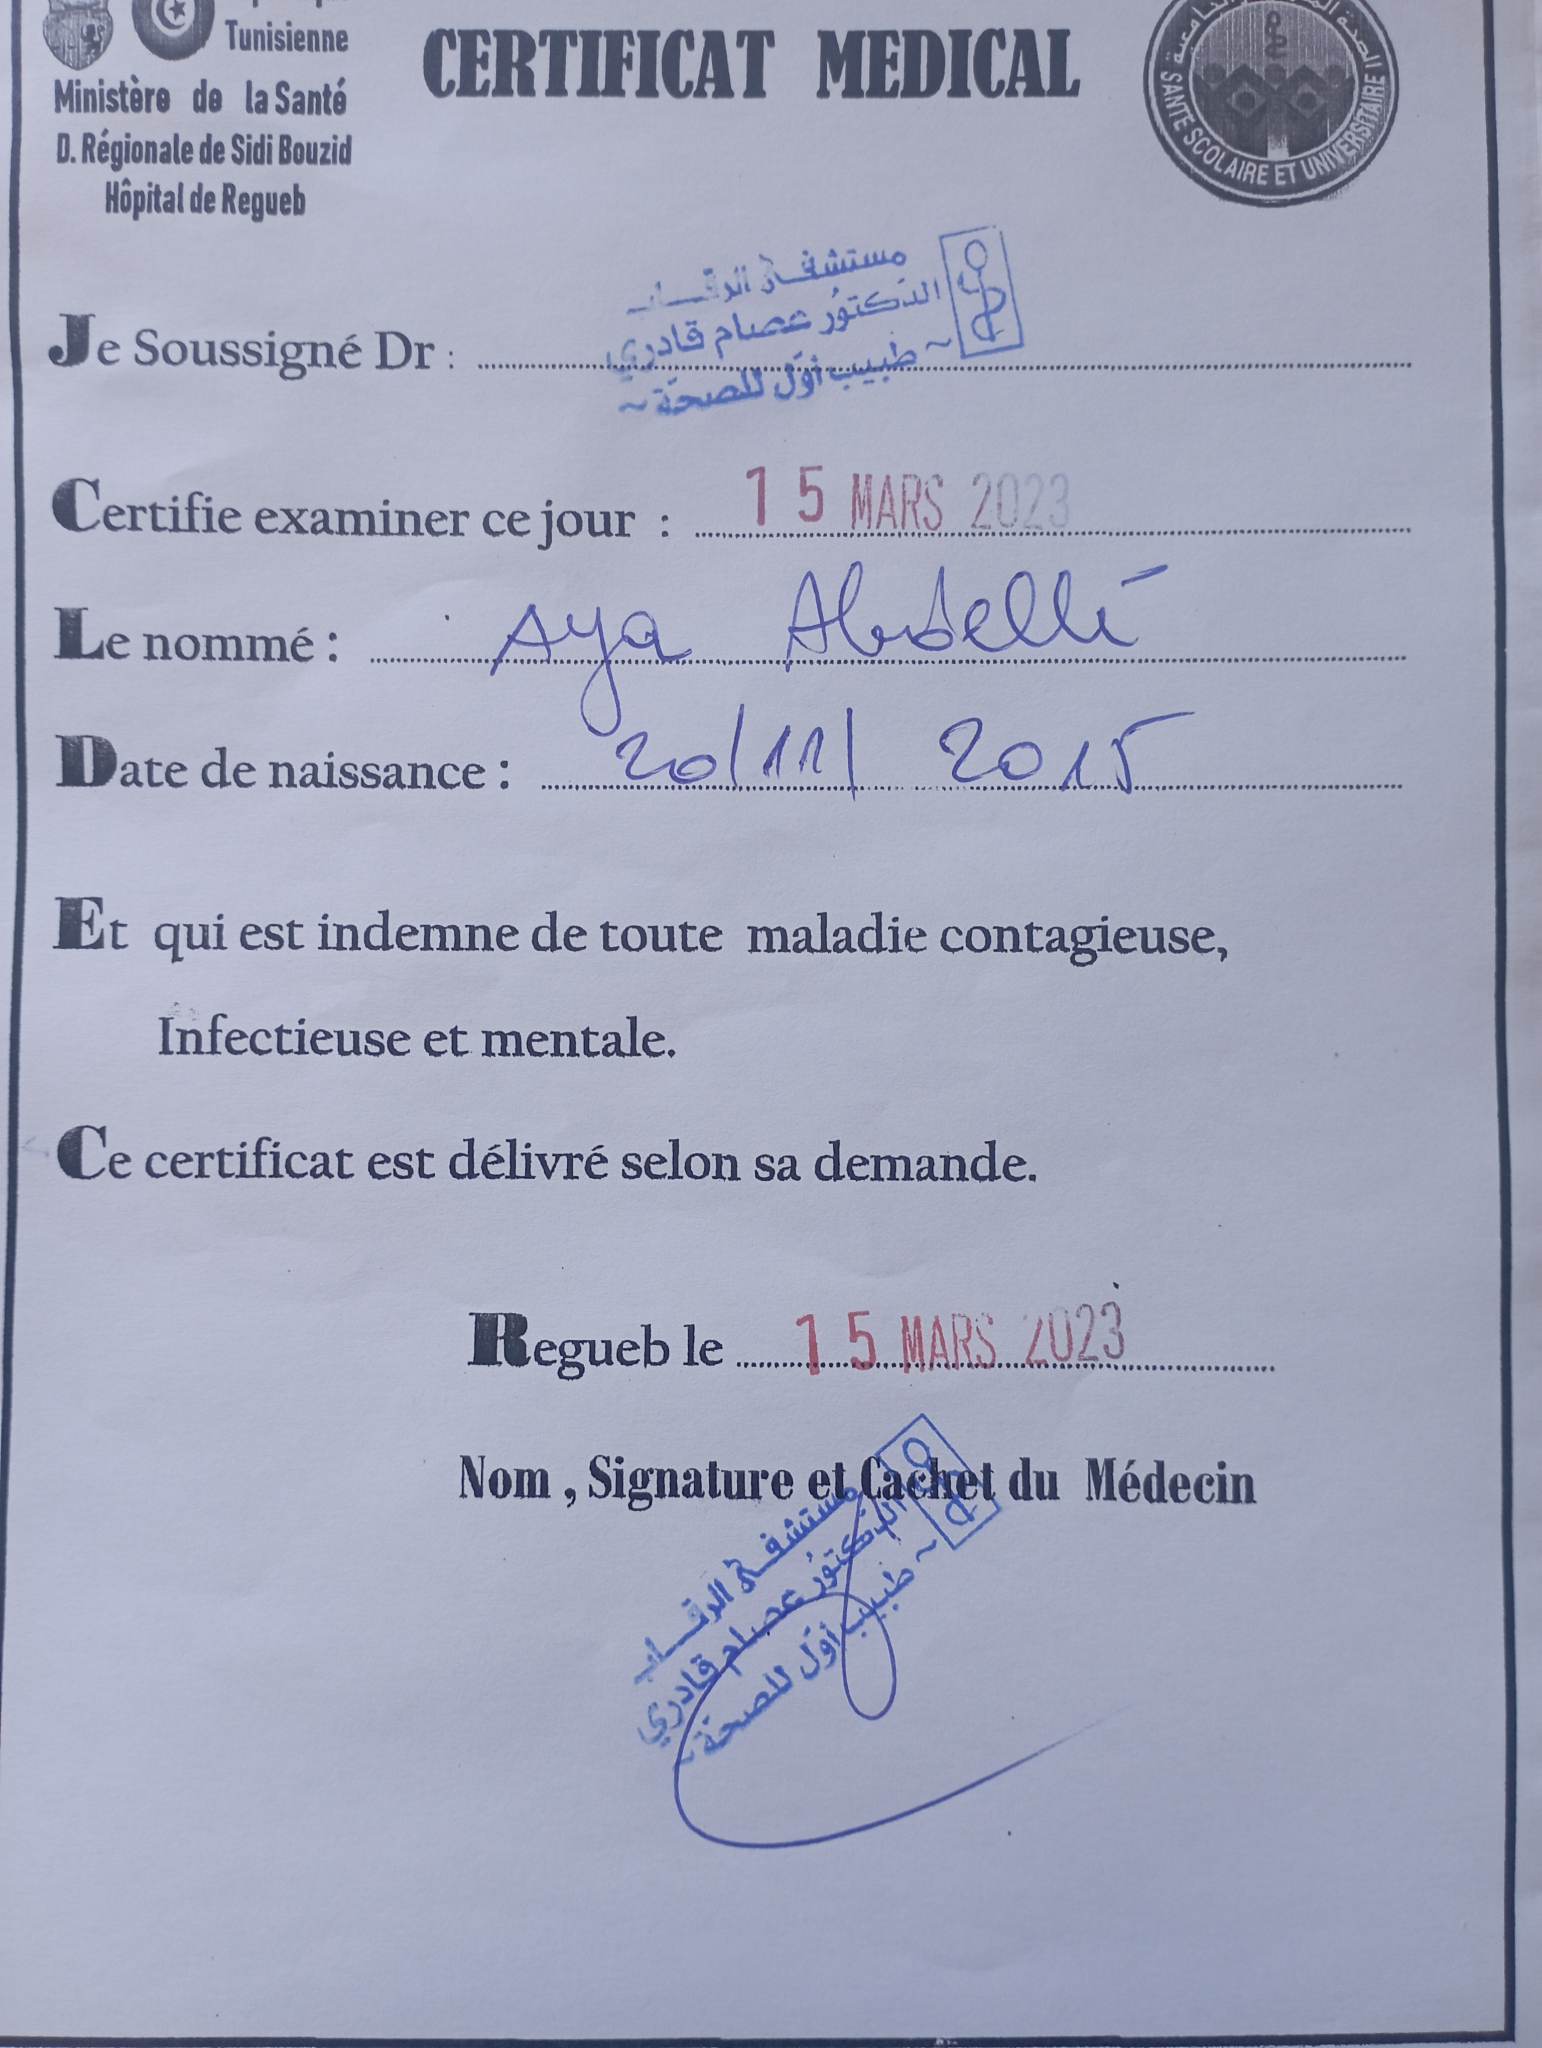 Tunisienne
Ministère de la Santé
D. Régionale de Sidi Bouzid
Hôpital de Regueb
CERTIFICAT MEDICAL
SANTE SCOLAIRE ET UNIVERSITAIRE
مستشفى الرقاب
الدّكتور عصام قادري
~ طبيب أوّل للصحّة ~
Je Soussigné Dr :
Certifie examiner ce jour : 15 MARS 2023
Le nommé : Aya Abdelli
Date de naissance : 20/11/ 2015
Et qui est indemne de toute maladie contagieuse,
Infectieuse et mentale.
Ce certificat est délivré selon sa demande.
Regueb le 15 MARS 2023
Nom , Signature et Cachet du Médecin
مستشفى الرقاب
الدّكتور عصام قادري
~ طبيب أوّل للصحّة ~